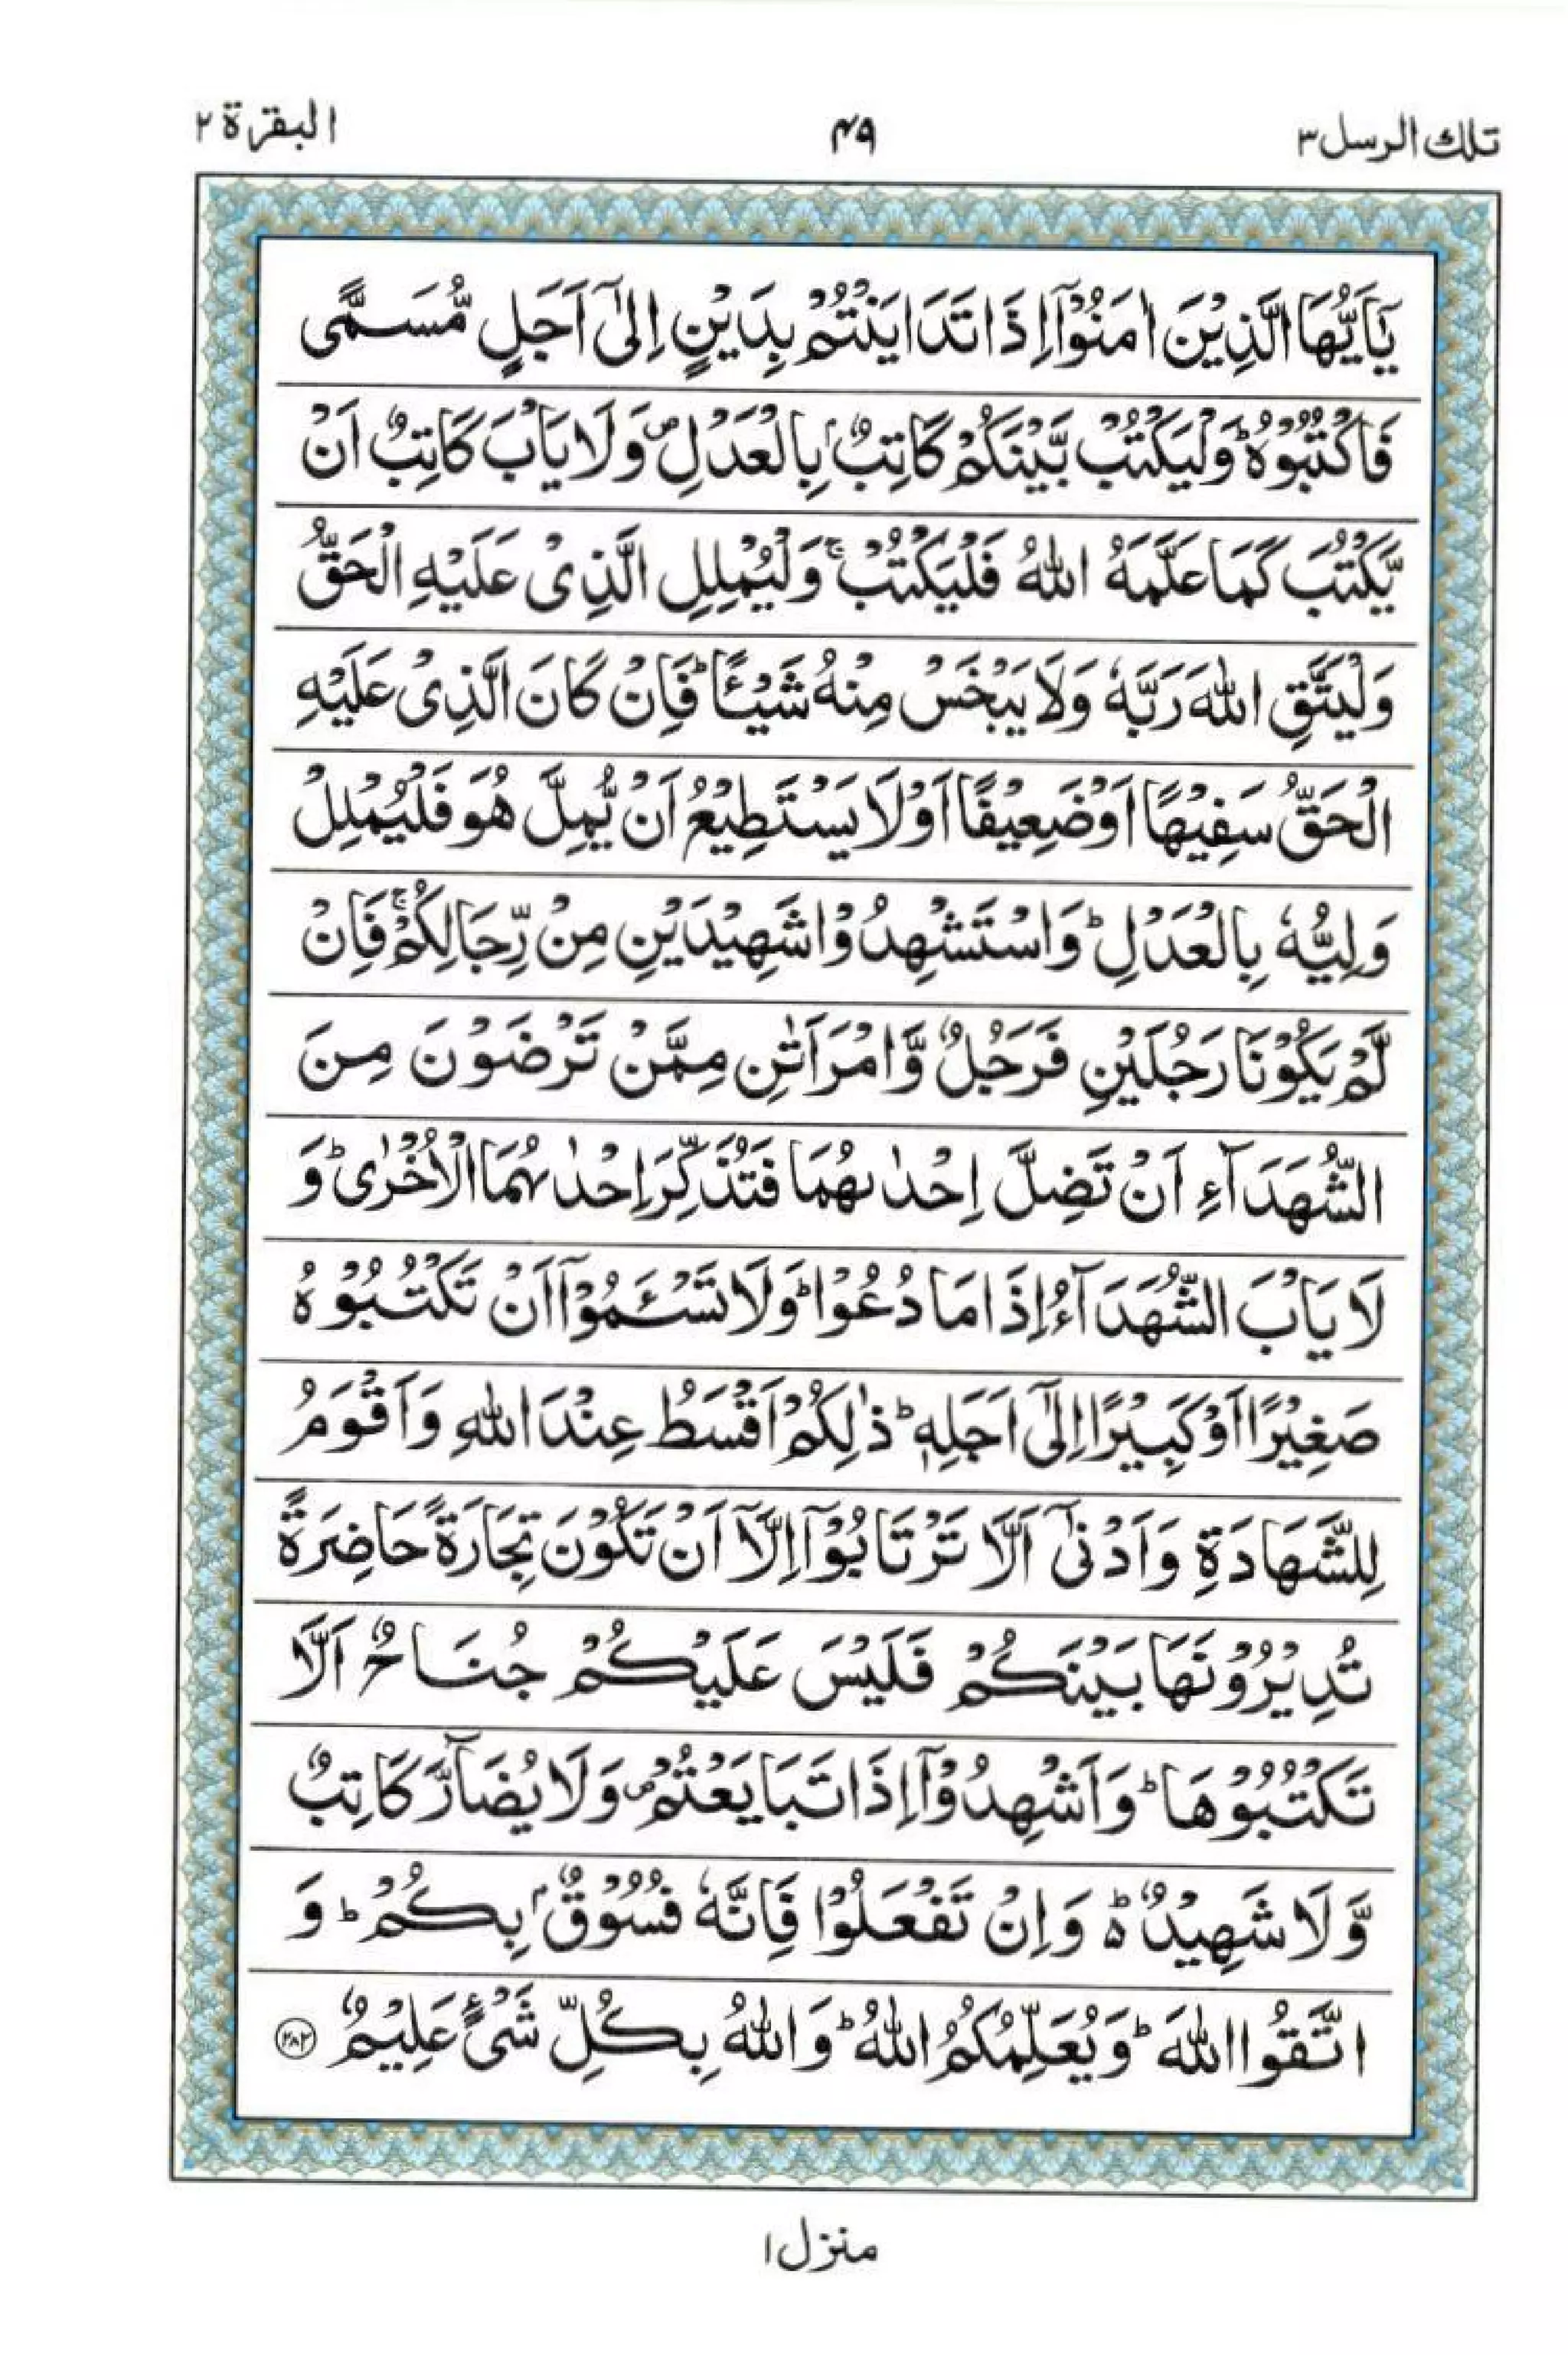 تلك الرسل ٣
٤٩
البقرة ٢
يٰۤاَيُّهَا الَّذِيْنَ اٰمَنُوْۤا اِذَا تَدَايَنْتُمْ بِدَيْنٍ اِلٰۤى اَجَلٍ مُّسَمًّى
فَاكْتُبُوْهُ ؕ وَلْيَكْتُبْ بَّيْنَكُمْ كَاتِبٌۢ بِالْعَدْلِ ۪ وَلَا يَاْبَ كَاتِبٌ اَنْ
يَّكْتُبَ كَمَا عَلَّمَهُ اللّٰهُ فَلْيَكْتُبْ ۚ وَلْيُمْلِلِ الَّذِىْ عَلَيْهِ الْحَقُّ
وَلْيَتَّقِ اللّٰهَ رَبَّهٗ وَلَا يَبْخَسْ مِنْهُ شَيْـًٔا ؕ فَاِنْ كَانَ الَّذِىْ عَلَيْهِ
الْحَقُّ سَفِيْهًا اَوْ ضَعِيْفًا اَوْ لَا يَسْتَطِيْعُ اَنْ يُّمِلَّ هُوَ فَلْيُمْلِلْ
وَلِيُّهٗ بِالْعَدْلِ ؕ وَاسْتَشْهِدُوْا شَهِيْدَيْنِ مِنْ رِّجَالِكُمْ ۚ فَاِنْ
لَّمْ يَكُوْنَا رَجُلَيْنِ فَرَجُلٌ وَّامْرَاَتٰنِ مِمَّنْ تَرْضَوْنَ مِنَ
الشُّهَدَآءِ اَنْ تَضِلَّ اِحْدٰىهُمَا فَتُذَكِّرَ اِحْدٰىهُمَا الْاُخْرٰى ؕ وَ
لَا يَاْبَ الشُّهَدَآءُ اِذَا مَا دُعُوْا ؕ وَلَا تَسْـَٔمُوْۤا اَنْ تَكْتُبُوْهُ
صَغِيْرًا اَوْ كَبِيْرًا اِلٰۤى اَجَلِهٖ ؕ ذٰلِكُمْ اَقْسَطُ عِنْدَ اللّٰهِ وَاَقْوَمُ
لِلشَّهَادَةِ وَاَدْنٰۤى اَلَّا تَرْتَابُوْۤا اِلَّاۤ اَنْ تَكُوْنَ تِجَارَةً حَاضِرَةً
تُدِيْرُوْنَهَا بَيْنَكُمْ فَلَيْسَ عَلَيْكُمْ جُنَاحٌ اَلَّا
تَكْتُبُوْهَا ؕ وَاَشْهِدُوْۤا اِذَا تَبَايَعْتُمْ ۪ وَلَا يُضَآرَّ كَاتِبٌ
وَّلَا شَهِيْدٌ ؕ۬ وَاِنْ تَفْعَلُوْا فَاِنَّهٗ فُسُوْقٌۢ بِكُمْ ؕ وَ
اتَّقُوا اللّٰهَ ؕ وَيُعَلِّمُكُمُ اللّٰهُ ؕ وَاللّٰهُ بِكُلِّ شَىْءٍ عَلِيْمٌ ٢٨٢
منزل ١